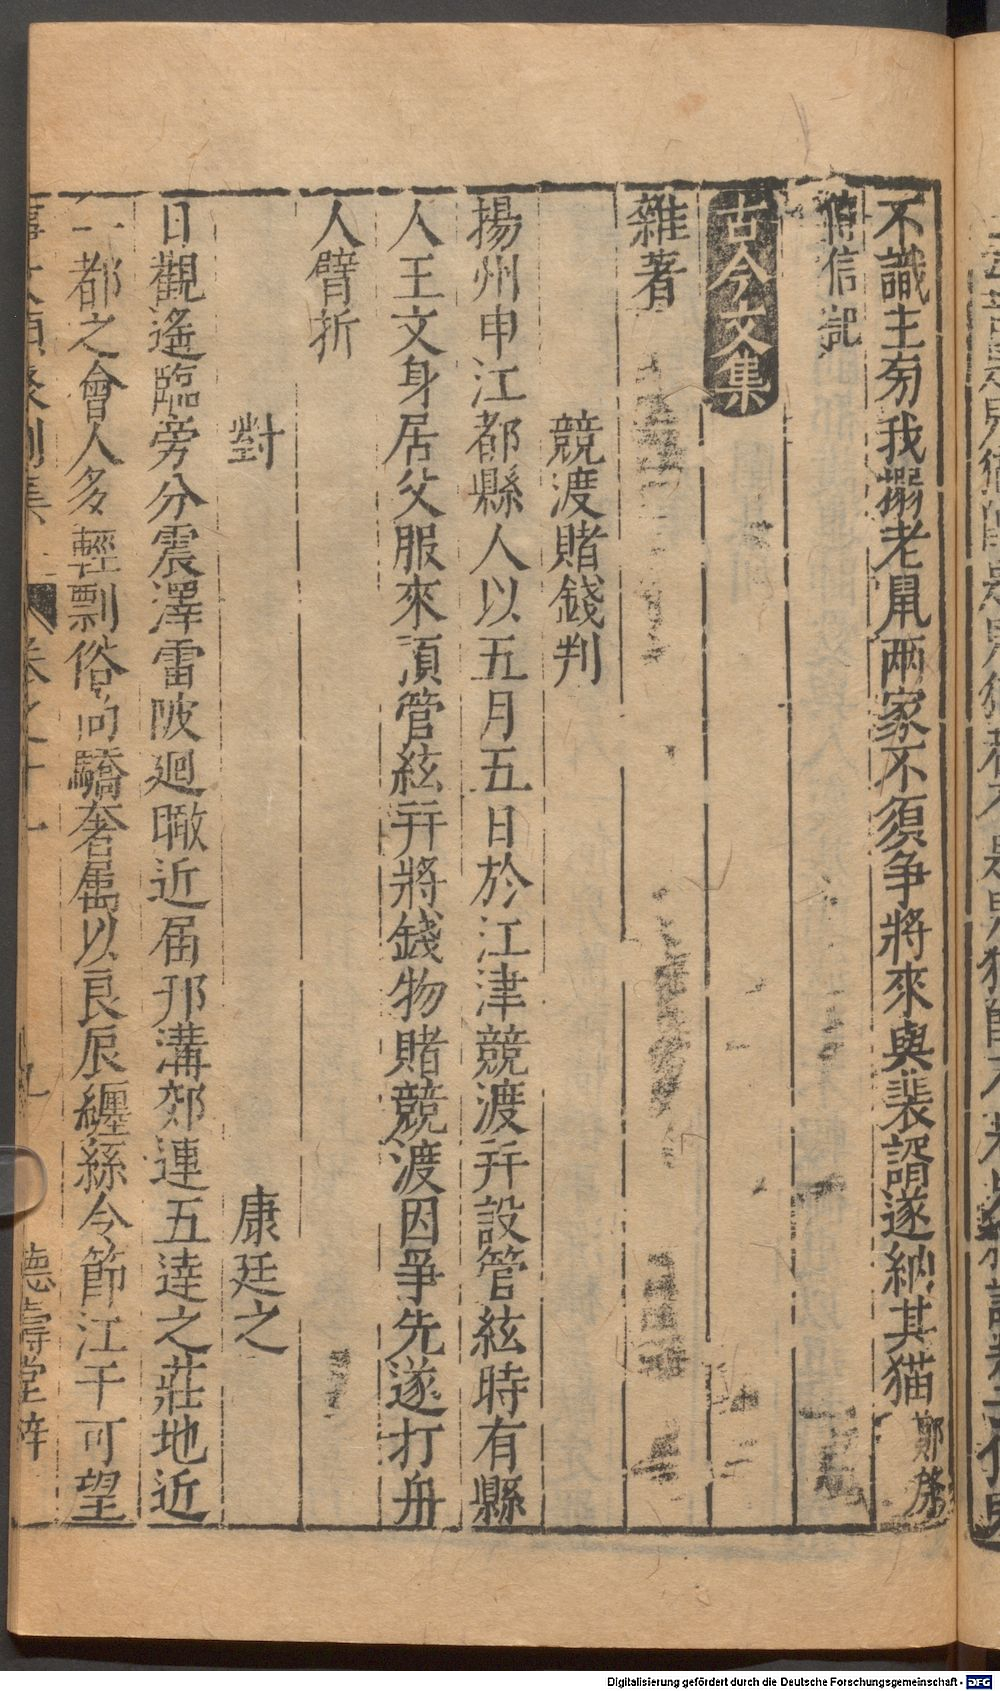 不識主旁我搦老鼠兩家不須争將來與裴諝遂納其猫 鄭綮
傳信記
古今文集
雜著
競渡賭錢判
揚州申江都縣人以五月五日於江津競渡幷設管絃時有縣
人王文身居父服來預管絃幷將錢物賭競渡因爭先遂打舟
人臂折
對 康廷之
日觀遙臨旁分震澤雷陂廻瞰近届邗溝郊連五逹之莊地近
一都之會人多輕剽俗尚驕奢属以良辰纏絲令節江干可望
事文類聚别集 卷之十一 九 德壽堂梓
Digitalisierung gefördert durch die Deutsche Forschungsgemeinschaft - DFG